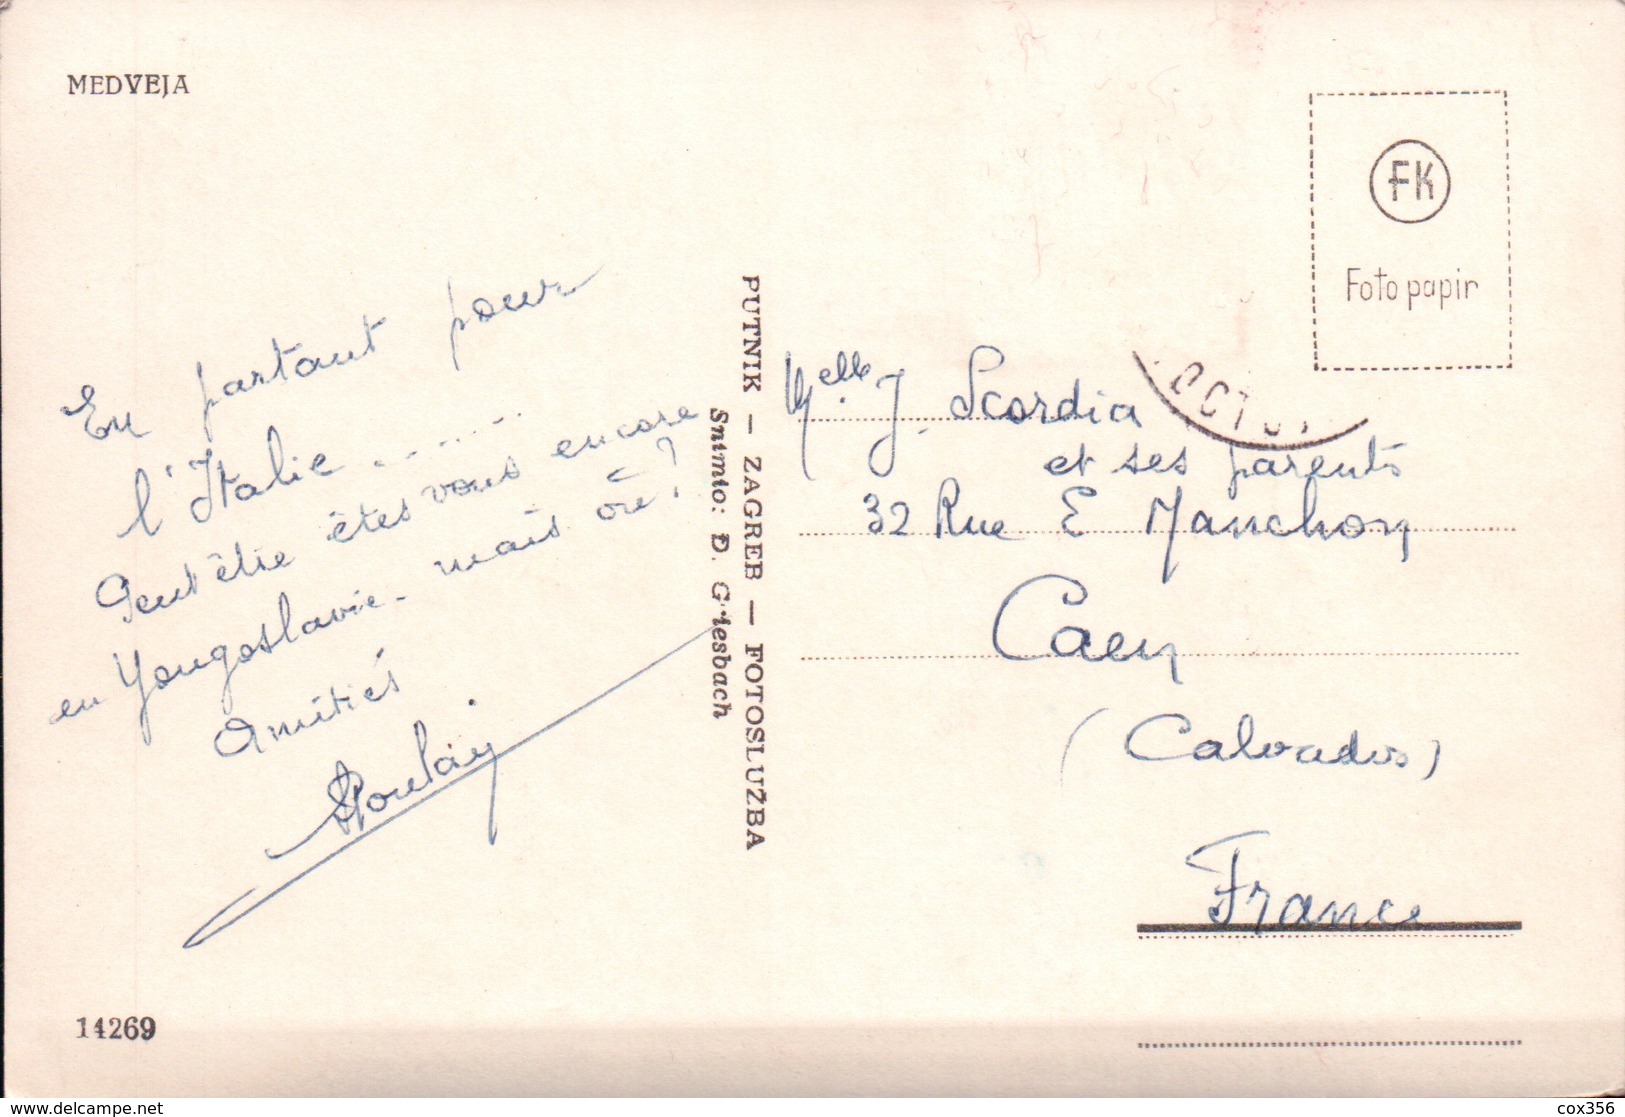 MEDVEJA
En partant pour
l'Italie ........
Peut être êtes vous encore
en Yougoslavie - mais où ?
Amitiés
14269
PUTNIK — ZAGREB — FOTOSLUŽBA
Snimio: Đ. Griesbach
FK
Foto papir
Melle. J. Scordia
et ses parents
32 Rue E Manchon
Caen
(Calvados)
France
delcampe.net
cox356